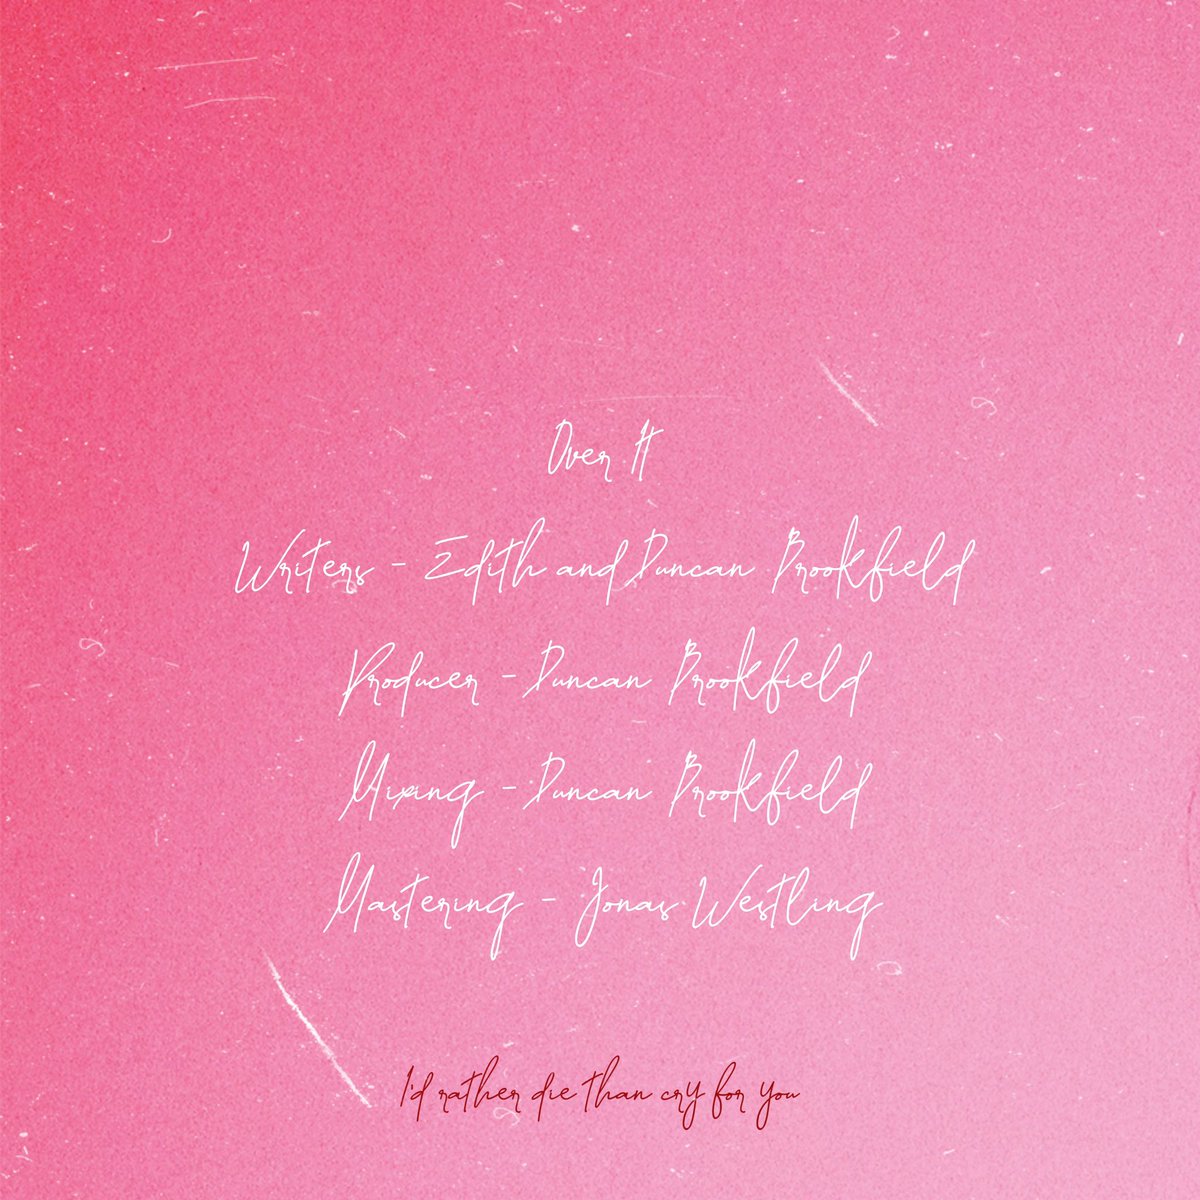 Over It
Writers - Edith and Duncan Brookfield
Producer - Duncan Brookfield
Mixing - Duncan Brookfield
Mastering - Jonas Westling
I'd rather die than cry for you